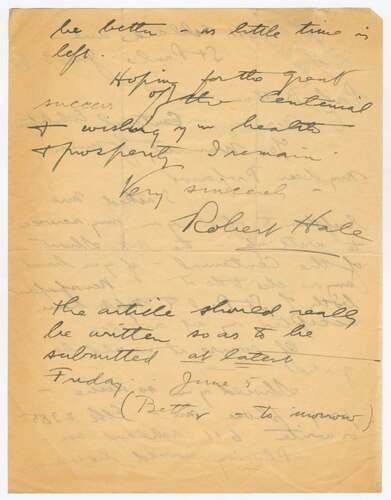 be better - as little time is
left.
Hoping for the great
success of the Centenial
& wishing you health
& prosperity I remain
Very sincerely -
Robert Hale
The article should really
be written so as to be
submitted at latest
Friday. June 5
(Better to morrow)